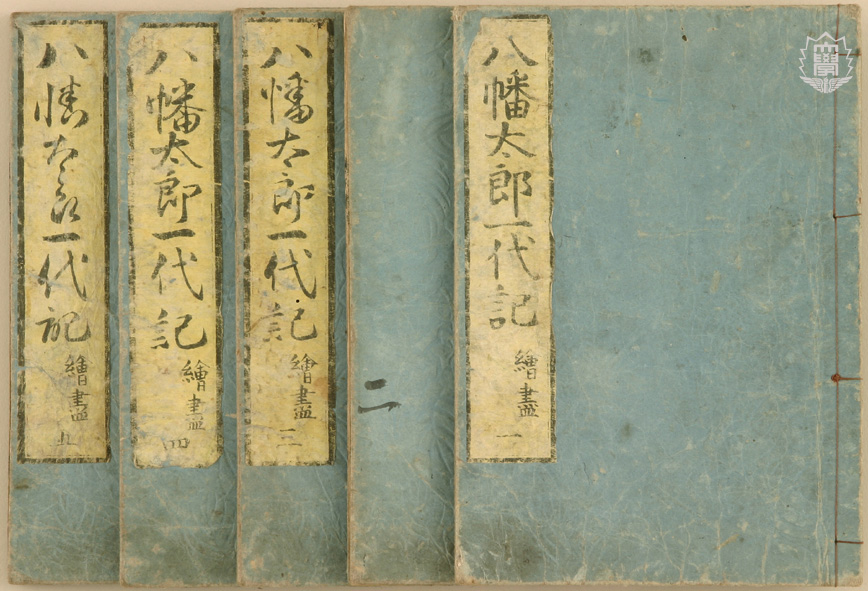 八幡太郎一代記
繪盡
一
二
八幡太郎一代記
繪盡
三
八幡太郎一代記
繪盡
四
八幡太郎一代記
繪盡
五
大學